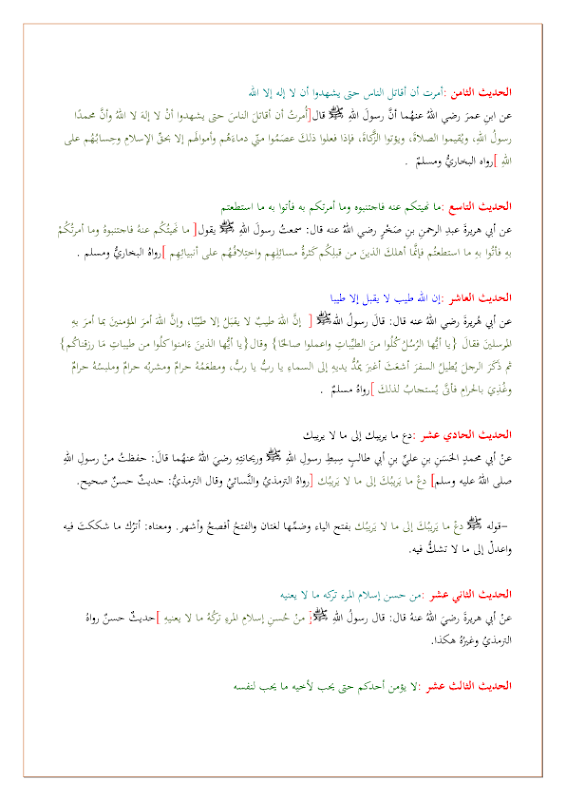 الحديث الثامن :أمرت أن أقاتل الناس حتى يشهدوا أن لا إله إلا الله
عن ابنِ عمرَ رضي اللهُ عنهُما أنَّ رسولَ اللهِ ﷺ قال[أُمرتُ أن أقاتلَ الناسَ حتى يشهدوا أنْ لا إلهَ لا اللهُ وأنَّ محمدًا
رسولُ اللهِ، ويُقيموا الصلاةَ، ويؤتوا الزَّكاةَ، فإذا فعلوا ذلكَ عصَمُوا منّي دماءَهُم وأموالَهم إلا بحقِّ الإسلامِ وحِسابُهُم على
اللهِ ]رواه البخاريُّ ومسلمٌ .
الحديث التاسع :ما نهيتكم عنه فاجتنبوه وما أمرتكم به فأتوا به ما استطعتم
عن أبي هريرةَ عبدِ الرحمنِ بنِ صَخْرٍ رضي اللهُ عنه قال: سمعتُ رسولَ اللهِ ﷺ يقول[ ما نَهيتُكُم عنهُ فاجتنبوهُ وما أمرتُكُمْ
بهِ فأتُوا بهِ ما استطعتُم فإنَّما أهلكَ الذينَ من قبلِكُم كثرةُ مسائِلِهِم واختِلافُهُم على أنبيائِهِم ]رواهُ البخاريُّ ومسلم .
الحديث العاشر :إن الله طيب لا يقبل إلا طيبا
عن أبي هُريرةَ رضي اللهُ عنه قال: قالَ رسولُ اللهﷺ [ إنَّ اللهَ طيبٌ لا يقبَلُ إلا طيّبًا، وإنَّ اللهَ أمرَ المؤمنينَ بما أمرَ بهِ
المرسلينَ فقالَ {يا أيُّها الرُسُلُ كُلُوا منَ الطيِّباتِ واعملوا صالحًا} وقال{يا أيُّها الذينَ ءَامنوا كلُوا من طيباتِ مَا رزقناكُم}
ثم ذَكَرَ الرجلَ يُطيلُ السفرَ أشعَثَ أغبرَ يمُدُّ يديهِ إلى السماءِ يا ربُّ يا ربُّ، ومطعَمُهُ حرامٌ ومشربُه حرامٌ وملبسُهُ حرامٌ
وغُذِيَ بالحرامِ فأنَّى يُستجابُ لذلكَ ]رواهُ مسلمٌ .
الحديث الحادي عشر :دع ما يريبك إلى ما لا يريبك
عنْ أبي محمدٍ الحَسَنِ بنِ عليِّ بنِ أبي طالبٍ سِبطِ رسولِ اللهِ ﷺ وريحانتِهِ رضيَ اللهُ عنهُما قالَ: حفظتُ منْ رسولِ اللهِ
صلى اللهُ عليه وسلم] دعْ ما يَريبُكَ إلى ما لا يَريبُك [رواهُ الترمذيُّ والنَّسائيُّ وقال الترمذيُّ: حديثٌ حسنٌ صحيح.
–قوله ﷺ دعْ ما يَريبُكَ إلى ما لا يَريبُك بفتح الياء وضمِّها لغتان والفتحُ أفصحُ وأشهر. ومعناه: أترُك ما شككتَ فيه
واعدلْ إلى ما لا تشكُّ فيه.
الحديث الثاني عشر :من حسن إسلام المرء تركه ما لا يعنيه
عنْ أبي هريرةَ رضيَ اللهُ عنهُ قال: قال رسولُ اللهِ ﷺ[ منْ حُسنِ إسلامِ المرءِ تَرْكُهُ ما لا يعنيهِ ]حديثٌ حسنٌ رواهُ
الترمذيُ وغيرُهُ هكذا.
الحديث الثالث عشر :لا يؤمن أحدكم حتى يحب لأخيه ما يحب لنفسه